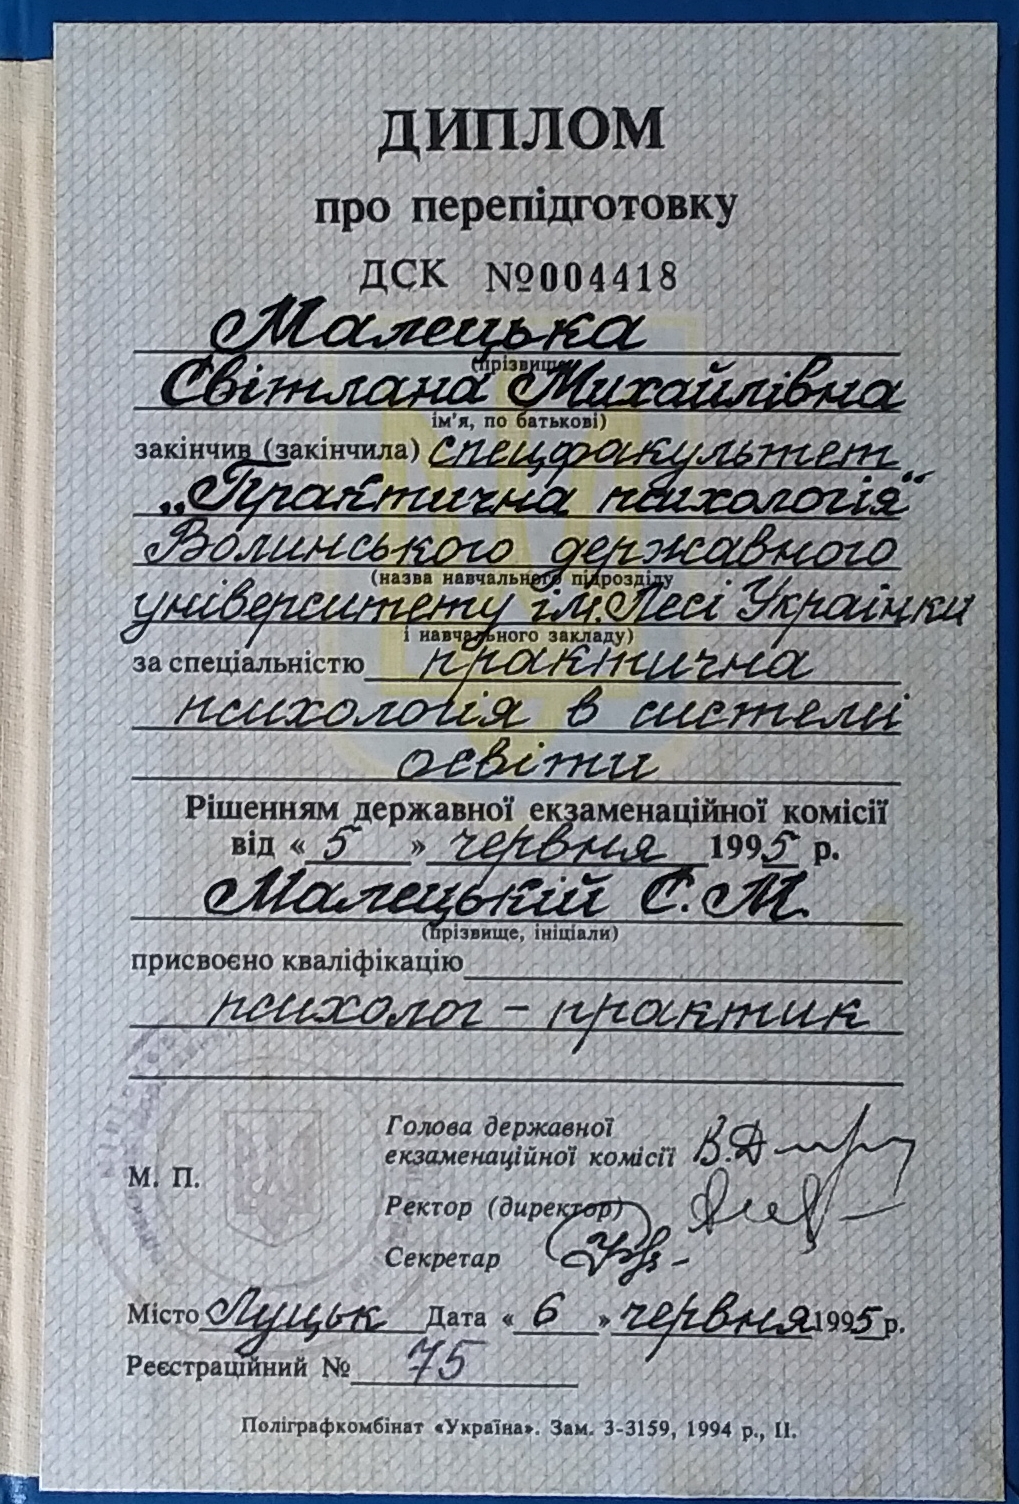 ДИПЛОМ
про перепідготовку
ДСК №004418
Малецька
(прізвище
Світлана Михайлівна
ім’я, по батькові)
закінчив (закінчила) спецфакультет
„Практична психологія“
Волинського державного
(назва навчального підрозділу
університету ім. Лесі Українки
і навчального закладу)
за спеціальністю практична
психологія в системі
освіти
Рішенням державної екзаменаційної комісії
від « 5 » червня 1995 р.
Малецькій С. М.
(прізвище, ініціали)
присвоєно кваліфікацію
психолог – практик
Голова державної
екзаменаційної комісії
М. П.
Ректор (директор)
Секретар
Місто Луцьк Дата « 6 » червня 1995 р.
Реєстраційний № 75
Поліграфкомбінат «Україна». Зам. 3-3159, 1994 р., II.